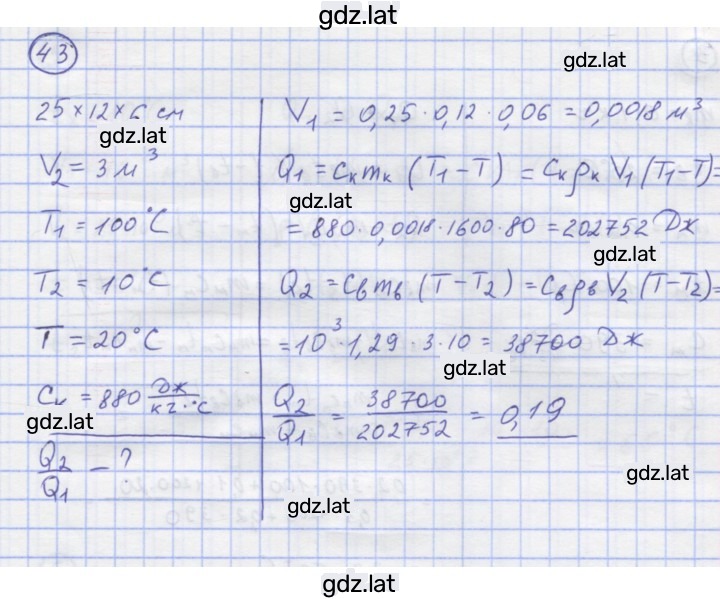 gdz.lat
43
gdz.lat
25 × 12 × 6 см
gdz.lat
V₂ = 3 м³
T₁ = 100°C
T₂ = 10°C
T = 20°C
Cₖ = 880 Дж/кг·°C
gdz.lat
Q₂/Q₁ – ?
V₁ = 0,25 · 0,12 · 0,06 = 0,0018 м³
Q₁ = Cₖmₖ (T₁ – T) = Cₖρₖ V₁ (T₁ – T) =
gdz.lat
= 880 · 0,0018 · 1600 · 80 = 202752 Дж
gdz.lat
Q₂ = Cвmв (T – T₂) = Cвρв V₂ (T – T₂) =
= 10³ 1,29 · 3 · 10 = 38700 Дж
gdz.lat
Q₂/Q₁ = 38700/202752 = 0,19
gdz.lat
gdz.lat
gdz.lat